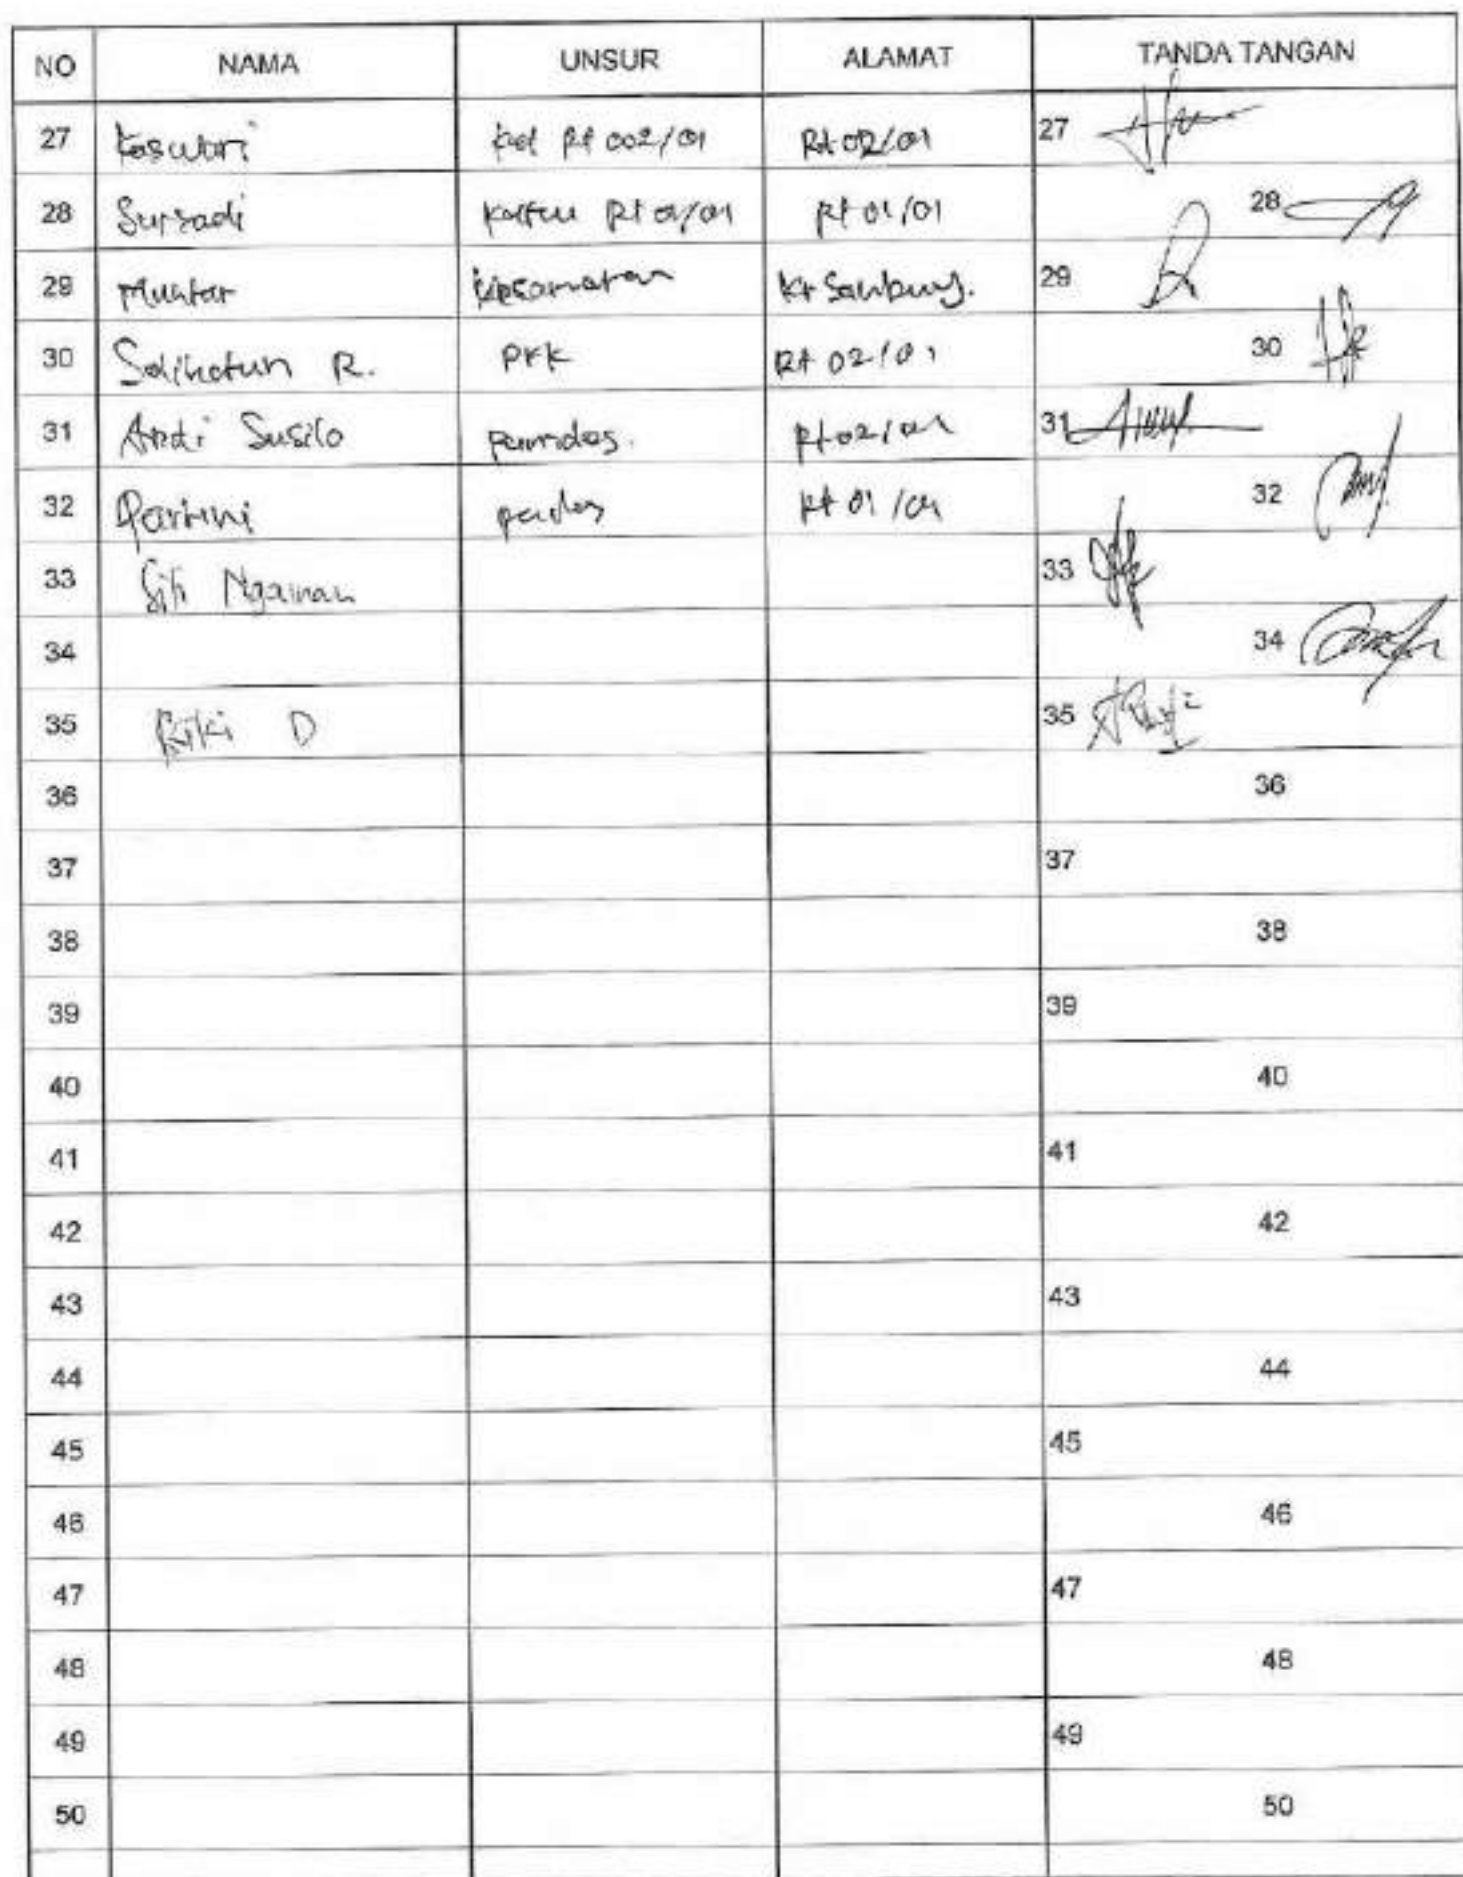 NO NAMA UNSUR ALAMAT TANDA TANGAN
27 Kaswari Ket Rt 002/01 Rt 02/01 27
28 Suryadi Rt 01/01 Rt 01/01 28
29 Muhtar Kecamatan Kr Sambung. 29
30 Solikatun R. PKK Rt 02/01 30
31 Andi Susilo Pamdes. Rt 02/01 31
32 Partini Rt 01/01 32
33 Siti Ngainah 33
34 34
35 Riki D 35
36 36
37 37
38 38
39 39
40 40
41 41
42 42
43 43
44 44
45 45
46 46
47 47
48 48
49 49
50 50